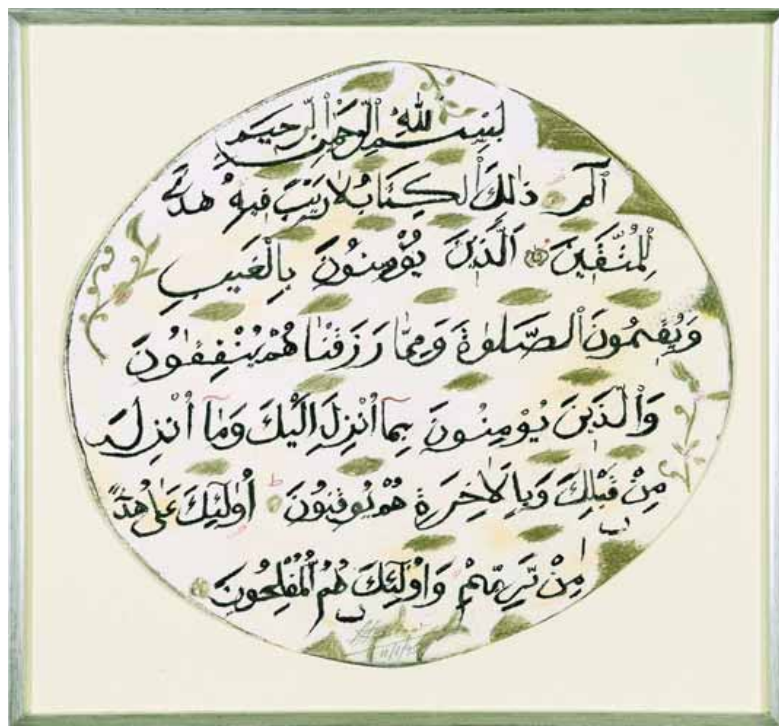 بِسْمِ اللّٰهِ الرَّحْمٰنِ الرَّحِيمِ
الٓمٓ ذٰلِكَ الْكِتَابُ لَا رَيْبَ فِيهِ هُدًى
لِلْمُتَّقِينَ الَّذِينَ يُؤْمِنُونَ بِالْغَيْبِ
وَيُقِيمُونَ الصَّلٰوةَ وَمِمَّا رَزَقْنَاهُمْ يُنْفِقُونَ
وَالَّذِينَ يُؤْمِنُونَ بِمَا أُنْزِلَ إِلَيْكَ وَمَا أُنْزِلَ
مِنْ قَبْلِكَ وَبِالْاٰخِرَةِ هُمْ يُوقِنُونَ أُولٰئِكَ عَلٰى هُدًى
مِنْ رَبِّهِمْ وَأُولٰئِكَ هُمُ الْمُفْلِحُونَ